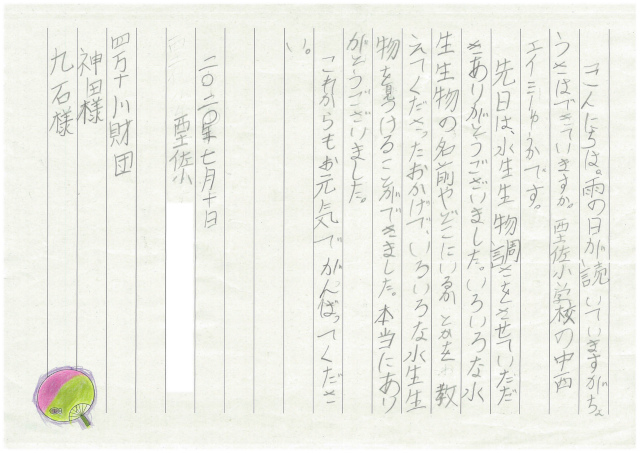 こんにちは。雨の日が読いていますがちょ
うさはできていますか。西土佐小学校の中西
エイミールカです。
先日は、水生生物調さをさせていただ
きありがとうございました。いろいろな水
生生物の名前やどこにいるかとかを教
えてくださったおかげで、いろいろな水生生
物を見つけることができました。本当にあり
がとうございました。
これからもお元気でがんばってくださ
い。
二〇二〇年七月十日
西土佐小
四万十川財団
神田様
丸石様